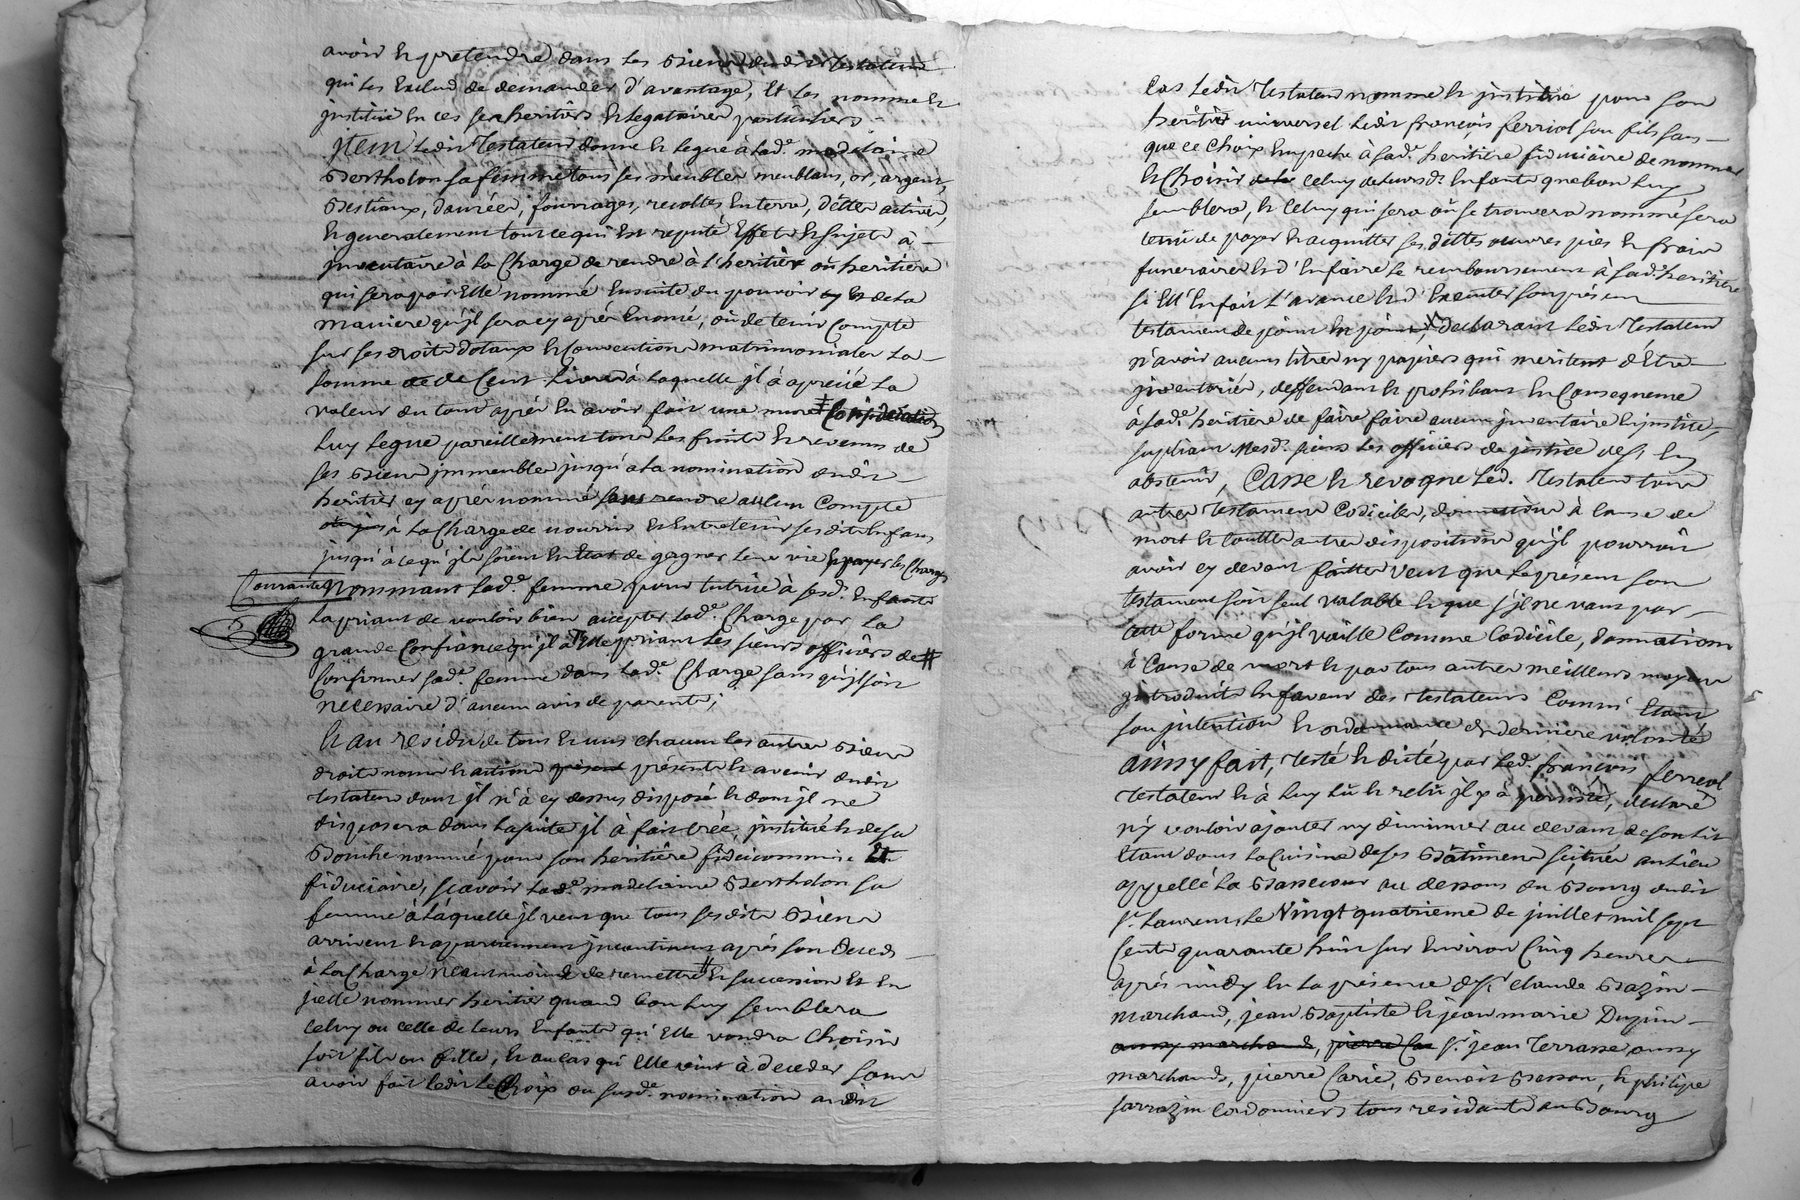 avoir et pretendre dans les Biens dudit testateur
qui les Exclud de demander d'avantage, Et les nomme et
jnstitue En ces ses heritiers et legataires particuliers
jtem ledit Testateur donne et legue à lad.e madelaine
Bertholon sa femme tous ses meubles meublans, or, argent,
Bestiaux, danrées, fourrages, recoltes En terre, dettes actives,
et generalement tout ce qui Est reputé Effets et sujets à
jnventaire à la Charge de rendre à l'heritier ou heritiere
qui sera par Elle nommé Ensuite du pouvoir et de la
maniere qu'jl sera cy après Enoncé, où de tenir Compte
sur ses droits dotaux et Conventions matrimoniales La
somme de Cent Livres à laquelle jl à aprecié La
valeur du tout après En avoir fait une mure Consideration
Luy Legue pareillement tous Les fruits et revenus de
ses Biens jmmeubles jusqu'a la nomination dudit
heritier cy après nommé sans rendre aucun Compte
à la Charge de nourrir et Entretenir sesdits Enfans
jusqu'à ce qu'jls soient En Etat de gagner leur vie et payer les Charges
Courantes Nommant lad.e femme pour tutrice à sesd. Enfants
la priant de vouloir bien accepter lad.e Charge par la
grande Confiance qu'jl à En Elle priant Les sieurs officiers de #
Confirmer sad.e femme dans lad.e Charge sans qu'jl soit
necessaire d'aucun avis de parents;
Et au residu de tous Et uns chacun les autres Biens
droits noms et actions présents et avenir dudit
testateur dont jl n'à cy dessus disposé et dont jl ne
disposera dans la suite jl à fait créé, jnstitué et de sa
Bouche nommé pour son heritiere fideicommise Et
fiduciaire, scavoir lad.e madelaine Bertholon sa
femme à Laquelle jl veut que tous sesdits Biens
arrivent et apartiennent jncontinent après son Deceds
à la Charge neantmoins de remettre # Et succession et En
jcelle nommer heritier quand bon luy semblera
celuy ou celle de leurs Enfants qu'Elle voudra Choisir
soit fils ou fille, et au cas qu'Elle vint à deceder sans
avoir fait ledit Choix ou susd.e nomination audit
Cas Ledit Testateur nomme et jnstitue pour son
heritier universel Ledit françois ferriol son fils sans
que ce Choix Empeche à sad.e heritiere fiduciaire de nommer
et Choisir celuy de leursd. Enfants que bon luy
semblera, et celuy qui sera où se trouvera nommé sera
tenu de payer et acquitter ses dettes œuvres pies et frais
funeraires et d'En faire Le remboursement à sad.e heritiere
si Ell'En fait L'avance et d'Executer son présent
testament de point En point, declarant Ledit Testateur
n'avoir aucuns titres ny papiers qui meritent d'Etre
jnventoriés, deffendant et prohibant En Consequence
à sad.e heritiere de faire faire aucun jnventaire En justice,
supliant Mesd. sieurs Les officiers de justice de s'En
abstenir, Casse et revoque Led. Testateur tous
autres testaments Codiciles, donnations à cause de
mort et toutte autres dispositions qu'jl pourroit
avoir cy devant faittes veut que Le présent son
testament soit seul valable et que s'jl ne vaut par
Cette forme qu'jl vaille Comme Codicile, donnation
à Cause de mort et par tous autres meilleurs moyens
jntroduits En faveur des testateurs Comm' Etant
son jntention Et ordonnance de derniere volonté
ainsy fait, Testé et dicté par Led. françois ferriol
Testateur et à Luy Lu et relu jl y à persisté, declaré
n'y vouloir ajouter ny diminuer au devant de son Lit
Etant dans La Cuisine de ses Bâtiments scitués au Lieu
appellé La Bassecour au dessous du Bourg dudit
s.t Laurent, Le Vingt quatrieme de juillet mil sept
Cents quarante huit sur Environ Cinq heures
après midy En La présence de s.r claude Bazin
marchand, jean Baptiste Et jean marie Dupin
aussy marchands, pierre Car s.r jean Terrasse aussy
marchands, pierre Carie, Benoit Besson, et philipe
sarrazin Cordonniers tous residants au Bourg